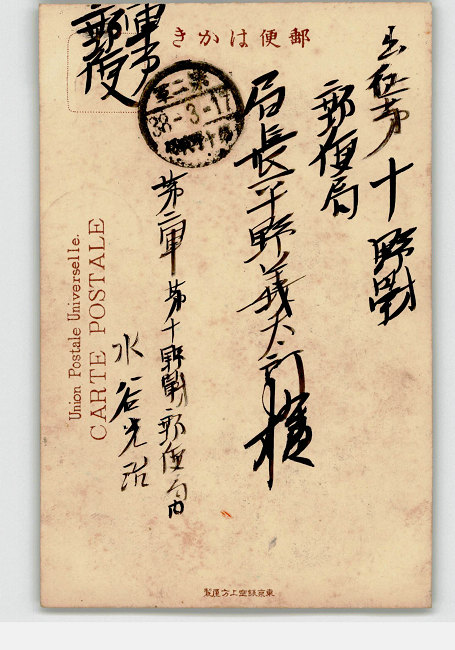 きかは便郵
軍事
郵便
第二軍
38-3-17
出征第十野戰
郵便局
局長平野義太郎様
第二軍第十野戰郵便局内
水谷光治
Union Postale Universelle.
CARTE POSTALE